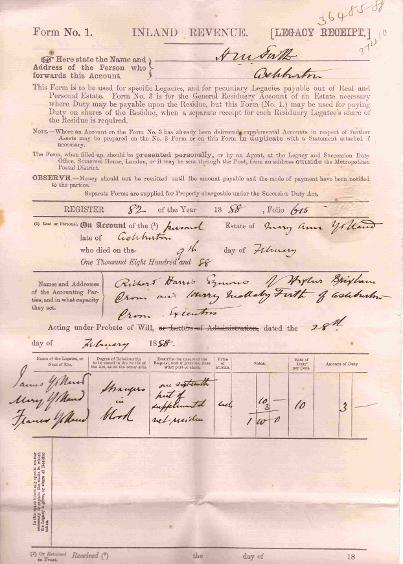 36485-88
Form No. 1. INLAND REVENUE. [LEGACY RECEIPT.]
Here state the Name and
Address of the Person who
forwards this Account
H M Firth
Ashburton
This Form is to be used for specific Legacies, and for pecuniary Legacies payable out of Real and
Personal Estate. Form No. 3 is for the General Residuary Account of an Estate necessary
where Duty may be payable upon the Residue, but this Form (No. 1.) may be used for paying
Duty on shares of the Residue, when a separate receipt for each Residuary Legatee's share of
the Residue is required.
NOTE.—Where an Account on the Form No. 3 has already been delivered supplemental Accounts in respect of further
Assets may be prepared on the No. 3 Form or on this Form in duplicate with a Statement attached if
necessary.
The Form, when filled up, should be presented personally, or by an Agent, at the Legacy and Succession Duty
Office, Somerset House, London, or it may be sent through the Post, from an address outside the Metropolitan
Postal District.
OBSERVE.—Money should not be remitted until the amount payable and the mode of payment have been notified
to the parties.
Separate Forms are supplied for Property chargeable under the Succession Duty Act.
REGISTER 82 of the Year 1888, Folio 615
(1) Real or Personal. On Account of the (1) personal Estate of Mary Ann Yolland
late of Ashburton
who died on the 9th day of February
One Thousand Eight Hundred and 88
Names and Addresses
of the Accounting Par-
ties, and in what capacity
they act.
Richard Harris Symons of Brixham
and Harry Firth of Ashburton
Executors
Acting under Probate of Will, or Letters of Administration, dated the 28th
day of February 1888.
Name of the Legatee, or
Next of Kin.
Rate of
Duty
per Cent.
Amount of Duty
James Yolland
Mary Yolland
Francis Yolland
Strangers
in
blood
one
part of
supplemental
net residue
cash
10
3 —
(2) Or Retained
in Trust.
Received (2) the day of 18